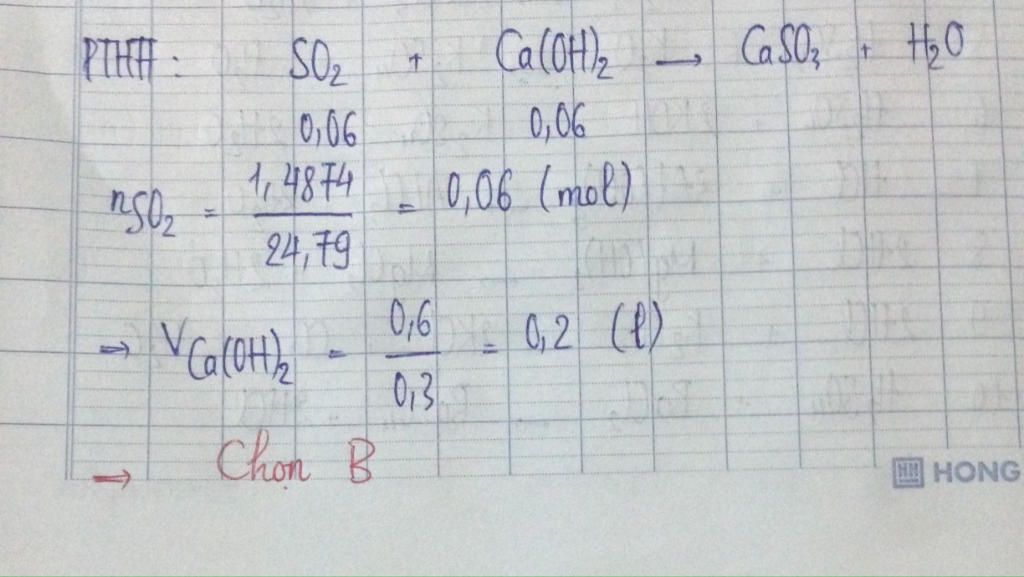 PTHH : SO₂ + Ca(OH)₂ → CaSO₃ + H₂O
0,06 0,06
nSO₂ = 1,4874 / 24,79 = 0,06 (mol)
⇒ VCa(OH)₂ = 0,6 / 0,3 = 0,2 (l)
⇒ Chọn B
HH HONG